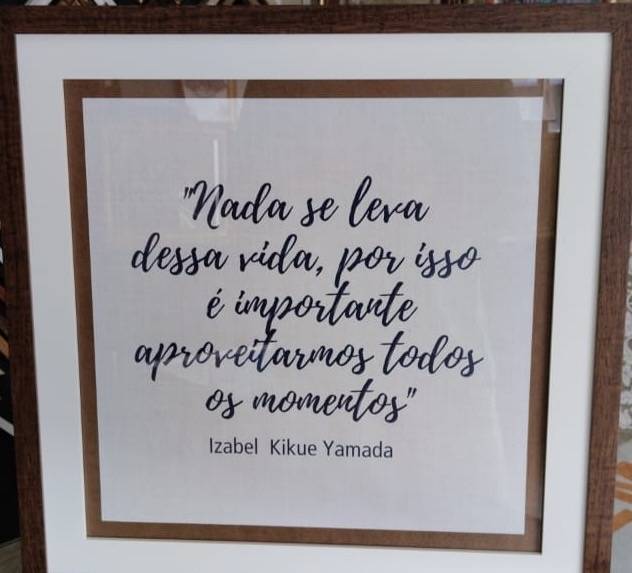 "Nada se leva
dessa vida, por isso
é importante
aproveitarmos todos
os momentos"
Izabel Kikue Yamada